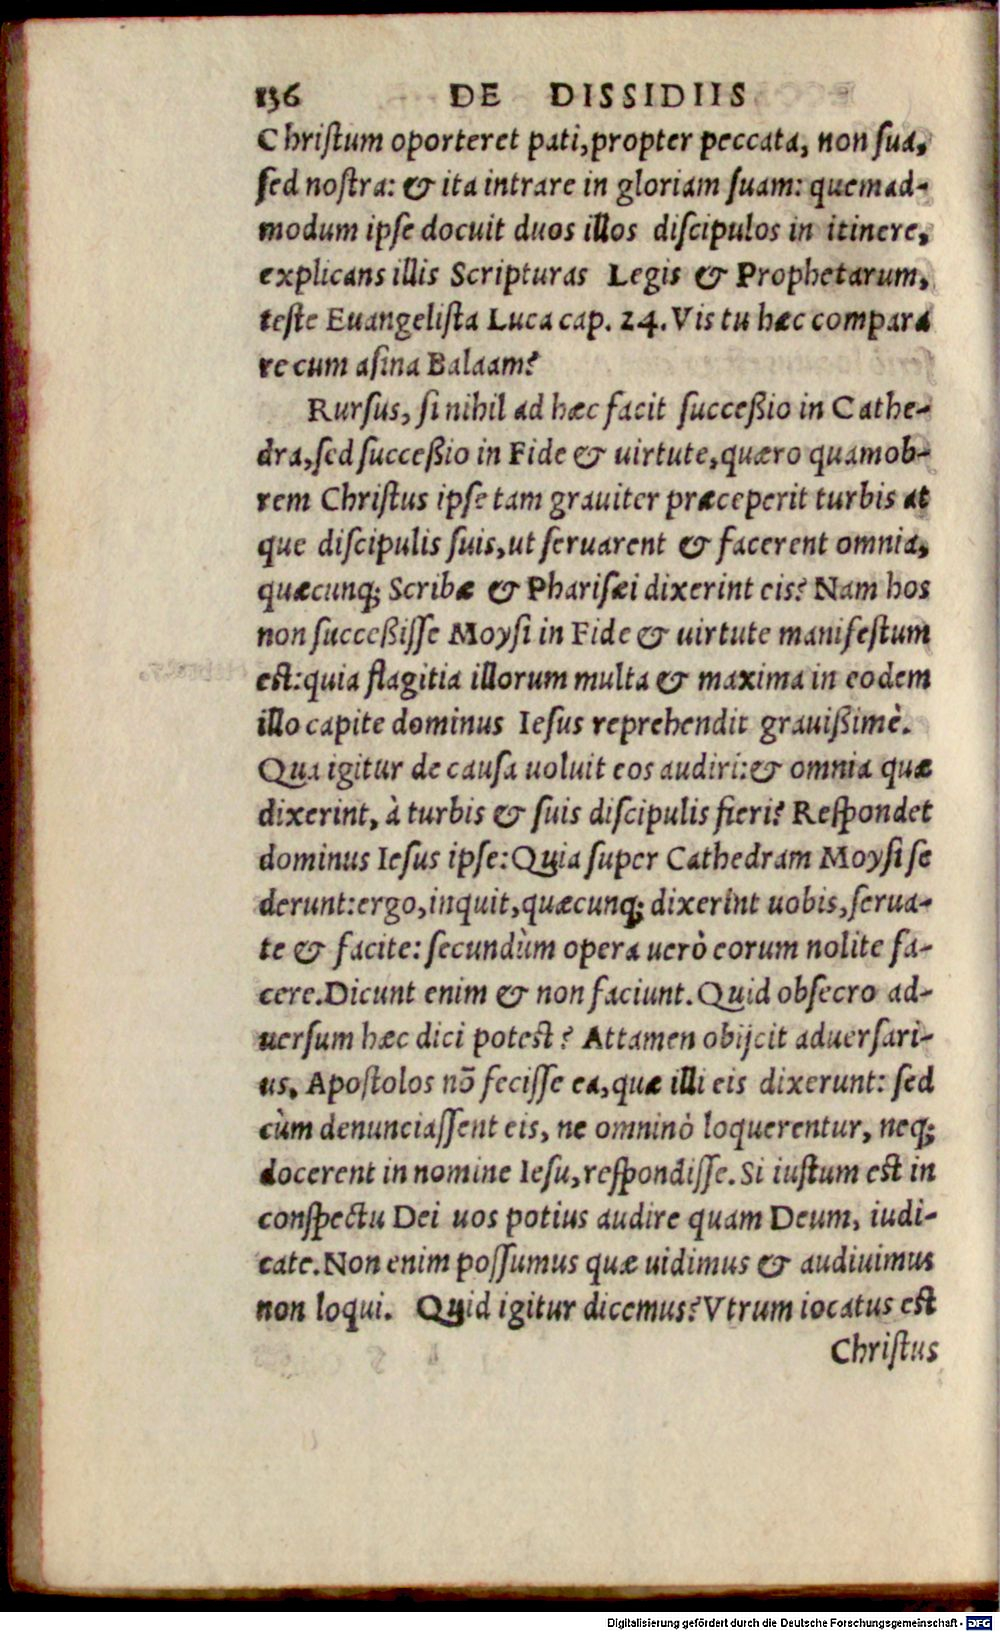 136 DE DISSIDIIS
Chriſtum oporteret pati, propter peccata, non ſua,
ſed noſtra: & ita intrare in gloriam ſuam: quemad-
modum ipſe docuit duos illos diſcipulos in itinere,
explicans illis Scripturas Legis & Prophetarum,
teſte Euangeliſta Luca cap. 24. Vis tu hæc compara
re cum aſina Balaam?
Rurſus, ſi nihil ad hæc facit ſucceßio in Cathe-
dra, ſed ſucceßio in Fide & uirtute, quæro quamob-
rem Chriſtus ipſe tam grauiter præceperit turbis at
que diſcipulis ſuis, ut ſeruarent & facerent omnia,
quæcunq; Scribæ & Phariſæi dixerint eis? Nam hos
non ſucceßiſſe Moyſi in Fide & uirtute manifeſtum
est: quia flagitia illorum multa & maxima in eodem
illo capite dominus Ieſus reprehendit grauißimè.
Qua igitur de cauſa uoluit eos audiri: & omnia quæ
dixerint, à turbis & ſuis diſcipulis fieri? Reſpondet
dominus Ieſus ipſe: Quia ſuper Cathedram Moyſi ſe
derunt: ergo, inquit, quæcunq; dixerint uobis, ſerua-
te & facite: ſecundùm opera uerò eorum nolite fa-
cere. Dicunt enim & non faciunt. Quid obſecro ad-
uerſum hæc dici potest? Attamen obijcit aduerſari-
us, Apoſtolos nō feciſſe ea, quæ illi eis dixerunt: ſed
cùm denunciaſſent eis, ne omninò loquerentur, neq;
docerent in nomine Ieſu, reſpondiſſe. Si iuſtum est in
conſpectu Dei uos potius audire quam Deum, iudi-
cate. Non enim poſſumus quæ uidimus & audiuimus
non loqui. Quid igitur dicemus? Vtrum iocatus est
Chriſtus
Digitalisierung gefördert durch die Deutsche Forschungsgemeinschaft - DFG